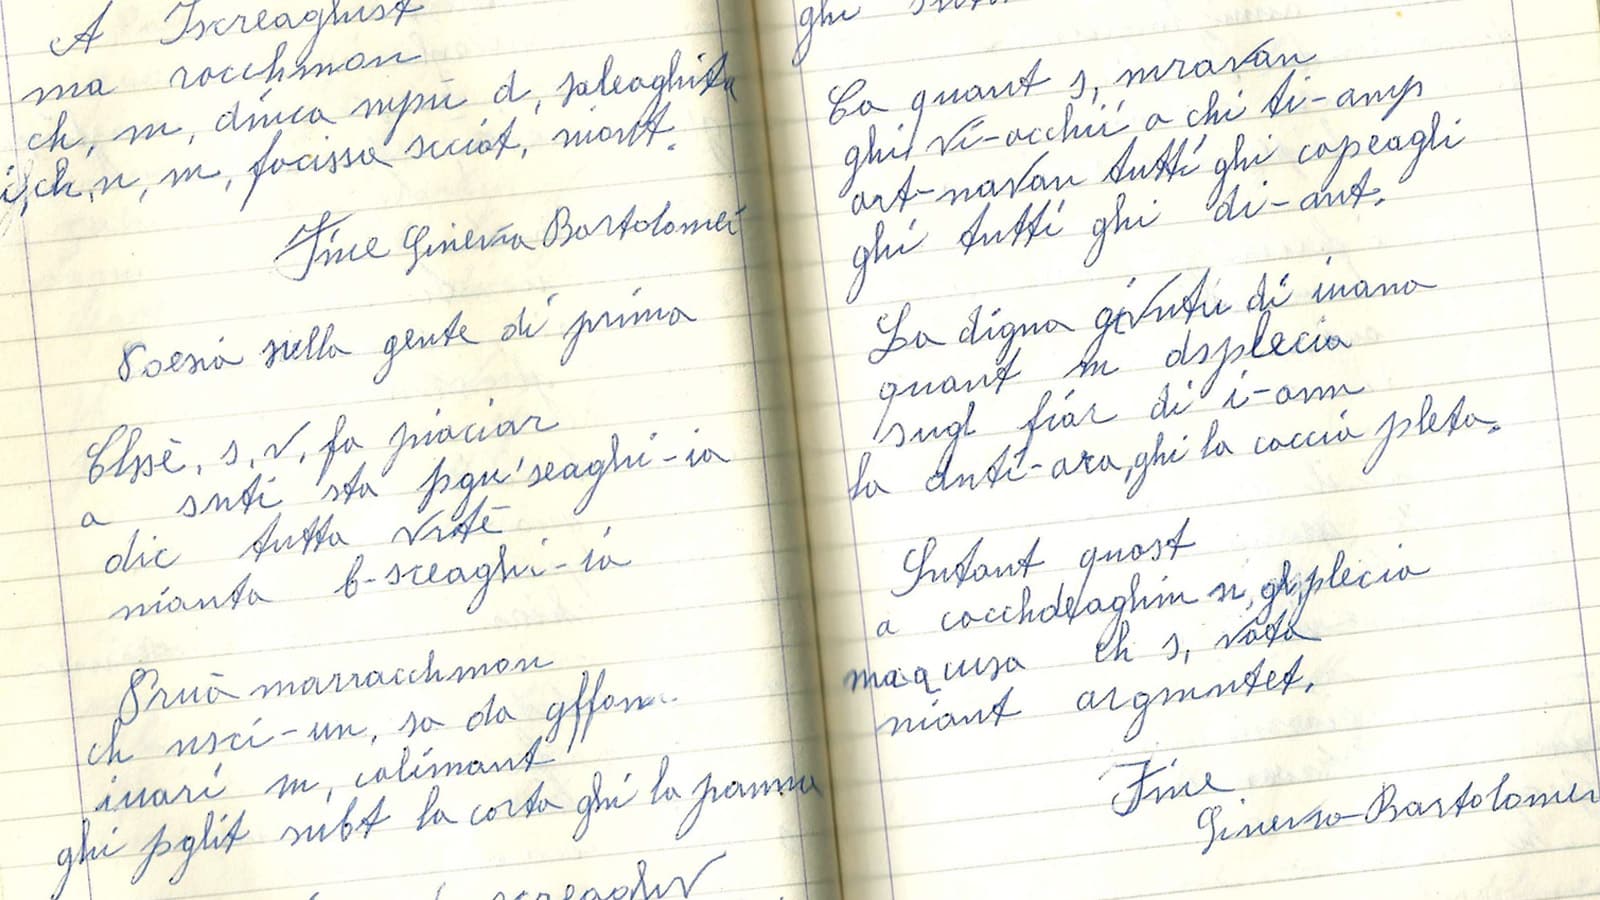 A Iscreaghist
ma racchman
ch, m, dinca mpü d, saleaghita
i, ch, n, m, facissa sicciót, niant.
Fine Ginevra Bartolomei
Poesia sulla gente di prima
Chssè, s, v, fa piaciar
a snti sta pgu'seaghi-ia
dic tutta vrtē
nianta b-sceaghi-ia
Pruà marracchman
ch nsci-un, sa da gffan
inari m, calimant
ghi pglit subt la carta ghi la panna
screaghiv
ghi
Ca quant s, mravan
ghi vi-acchii a chi ti-amp
art-navan tutti ghi capeagli
ghi tutti ghi di-ant.
La digna givntu di inana
quant m dsplecia
sugl fiar di i-ann
la anti-ara, ghi la caccia pleta.
Sntant quast
a cacchdeaghin n, gl, plecia
ma quisa ch s, vata
niant argmntet.
Fine
Ginevra-Bartolomei